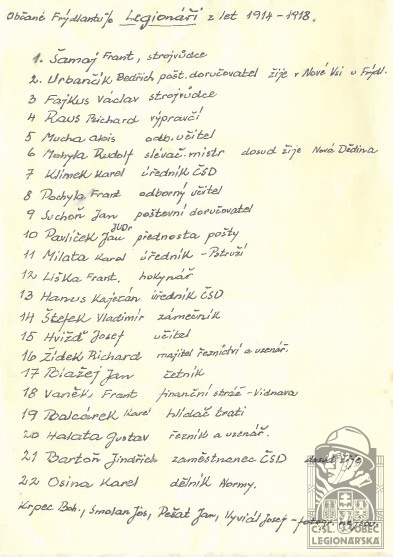 Občané Frýdlantu/o Legionáři z let 1914-1918.
1. Šamaj Frant, strojvůdce
2. Urbančík Bedřich pošt. doručovatel žije v Nové Vsi u Frýdl.
3 Fajkus Václav strojvůdce
4 Raus Richard výpravčí
5 Mucha Alois odb. učitel
6 Mohyla Rudolf slévač. mistr dosud žije Nová Dědina
7 Klimek Karel úředník ČSD
8 Pochyla Frant odborný učitel
9 Suchoň Jan poštovní doručovatel
10 Pavlíček Jan JUDr přednosta pošty
11 Milata Karol úředník - Pstruží
12 Liška Frant. hokynář
13 Hanus Kajetán úředník ČSD
14 Štefek Vladimír zámečník
15 Hvížď Josef učitel
16 Žídek Richard majitel řeznictví a uzenář.
17 Blažej Jan četník
18 Vaněk Frant finanční stráž - Vidnava
19 Balcárek Karel hlídač trati
20 Halata Gustav řezník a uzenář.
21 Bartoň Jindřich zaměstnanec ČSD dosud žije
22 Osina Karel dělník Normy.
Krpec Boh., Smolan Jos, Pešat Jan, Vyviál Josef -
ČSL. OBEC
LEGIONÁŘSKÁ